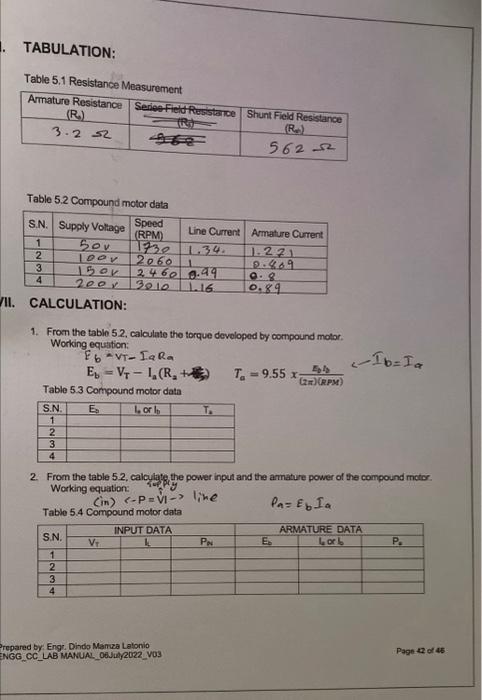 I. TABULATION:
Table 5.1 Resistance Measurement
Armature Resistance (Rₐ) Series Field Resistance (Rf) Shunt Field Resistance
3.2 Ω 562 Ω
Table 5.2 Compound motor data
S.N. Supply Voltage Speed (RPM) Line Current Armature Current
1 50v 1730 1.34 1.271
2 100v 2060 1
3 150v 2460 0.99 0.8
4 200v 3010 1.16 0.89
VII. CALCULATION:
1. From the table 5.2, calculate the torque developed by compound motor.
Working equation:
Eb = VT - IaRa
Eb = VT – Ia(Ra + Tₐ = 9.55 x EbIb/(2π)(RPM) ← Ib = Ia
Table 5.3 Compound motor data
S.N. Eb Iₐ or Ib Tₐ
1
2
3
4
2. From the table 5.2, calculate the power input and the armature power of the compound motor.
supply
Working equation:
(in) <-P = VI -> line Pa = EbIa
Table 5.4 Compound motor data
S.N. INPUT DATA ARMATURE DATA
VT IL PIN Eb Iₐ or Ib Pₐ
1
2
3
4
Prepared by: Engr. Dindo Mamza Latonio
ENGG_CC_LAB MANUAL_06July2022_V03
Page 42 of 46